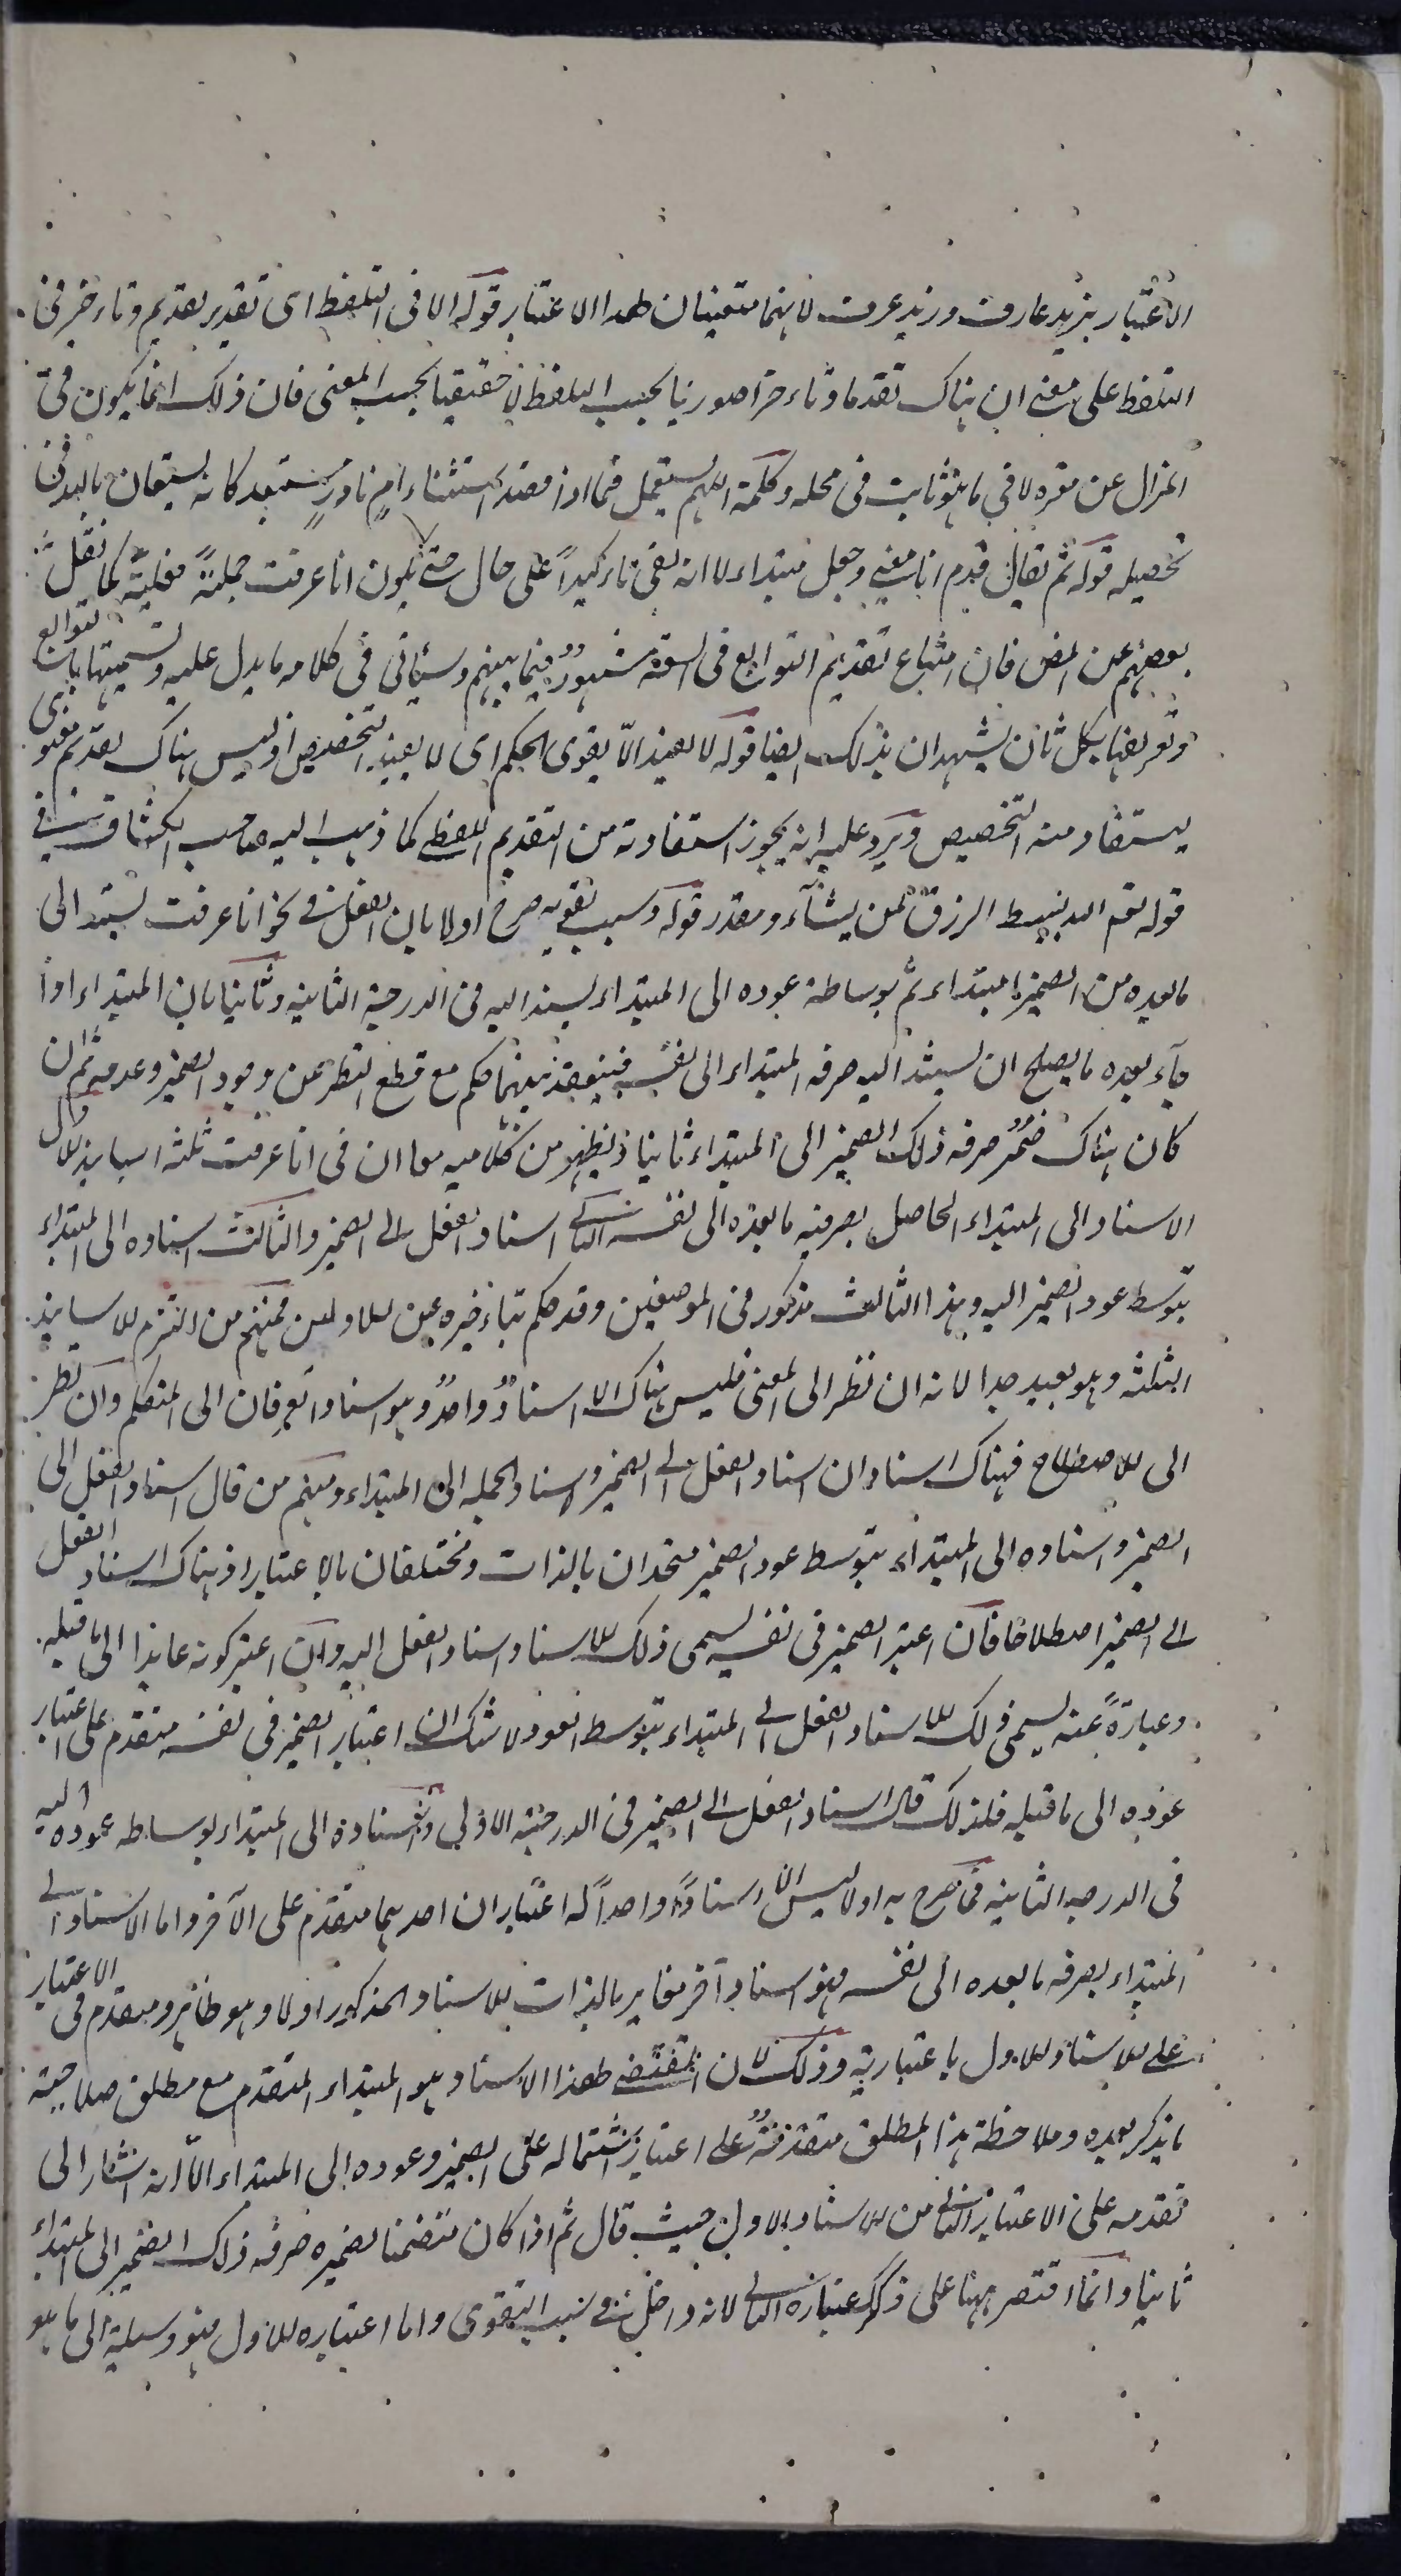 الاعتبار بزيد عارف وزيد عرف لانهما متعينان لهذا الاعتبار قوله الا فى التلفظ اى تقدير تقديم وتاخير فى
التلفظ على معنى ان هناك تقدما وتاخرا صوريا بحسب اللفظ لا حقيقيا بحسب المعنى فان ذلك انما يكون فى
المزال عن مقره لا فى ما هو ثابت فى محله وكلمة اللهم يستعمل فيما اذا قصد استثناء امر نادر مستبعد كانه يستعان بالله فى
تحصيله قوله ثم يقال قدم انا بمعنى وجعل مبتداء لا انه بقى تاكيدا على حال حتى يكون انا عرفت جملة فعلية كما نقل
بعضهم عن المص فان امتناع تقديم التوابع فى السعة مشهور فيما بينهم وسياتى فى كلامه ما يدل عليه وتسميتها بالتوابع
وتعريفها بكل ثان يشهدان بذلك ايضا قوله لا يفيد الا يقوى الحكم اى لا يفيد التخصيص اذ ليس هناك تقديم معنوى
يستفاد منه التخصيص ويرد عليه انه يجوز استفادته من التقديم اللفظى كما ذهب اليه صاحب الكشاف فى
قوله تعم الله يبسط الرزق لمن يشآء ويقدر قوله وسبب تقويه صرح اولا بان الفعل فى نحو انا عرفت يستند الى
ما بعده من الضمير ابتداء ثم بوساطة عوده الى المبتداء يسند اليه فى الدرجة الثانية وثانيا بان المبتداء اذا
جاء بعده ما يصلح ان يسند اليه صرفه المبتداء الى نفسه فينعقد بينهما حكم مع قطع النظر عن وجود الضمير وعدمه ثم ان
كان هناك ضمير صرفه ذلك الضمير الى المبتداء ثانيا فيظهر من كلاميه معا ان فى انا عرفت ثلثه اسانيد الاول
الاسناد الى المبتداء الحاصل بصرفه ما بعده الى نفسه الثانى اسناد الفعل الى الضمير والثالث اسناده الى المبتداء
بتوسط عود الضمير اليه وهذا الثالث مذكور فى الموضعين وقد حكم بتاخيره عن الاولين فمنهم من التزم الاسانيد
الثلثه وهو بعيد جدا لانه ان نظر الى المعنى فليس هناك الا اسناد واحد وهو اسناد العرفان الى المتكلم وان نظر
الى الاصطلاح فهناك اسنادان اسناد الفعل الى الضمير واسناد الجمله الى المبتداء ومنهم من قال اسناد الفعل الى
الضمير واسناده الى المبتداء بتوسط عود الضمير متحدان بالذات ومختلفان بالاعتبار اذ هناك اسناد الفعل
الى الضمير اصطلاحا فان اعتبر الضمير فى نفسه يسمى ذلك الاسناد اسناد الفعل اليه وان اعتبر كونه عايدا الى ما قبله
وعبارة عنه يسمى ذلك الاسناد الفعل الى المبتداء بتوسط العود ولا شك ان اعتبار الضمير فى نفسه متقدم على اعتبار
عوده الى ما قبله فلذلك قال اسناد الفعل الى الضمير فى الدرجة الاولى واسناده الى المبتداء بوساطه عوده اليه
فى الدرجه الثانيه فما صرح به اولا ليس الا اسنادا واحدا له اعتباران احدهما متقدم على الآخر واما الاسناد الى
المبتداء بصرفه ما بعده الى نفسه فهو اسناد آخر مغاير بالذات للاسناد المذكور اولا وهو ظاهر ومتقدم فى الاعتبار
على الاسناد الاول باعتباريه وذلك لان المقتضى لهذا الاسناد هو المبتداء المتقدم مع مطلق صلاحية
ما يذكر بعده وملاحظة هذا المطلق متقدمة على اعتبار اشتماله على الضمير وعوده الى المبتداء الا انه اشار الى
تقدمه على الاعتبار الثانى من الاسناد الاول حيث قال ثم اذا كان متضمنا لضميره صرفه ذلك الضمير الى المبتداء
ثانيا وانما اقتصر ههنا على ذكر اعتباره الثانى لانه داخل فى سبب التقوى واما اعتباره الاول فهو وسيلة الى ما هو